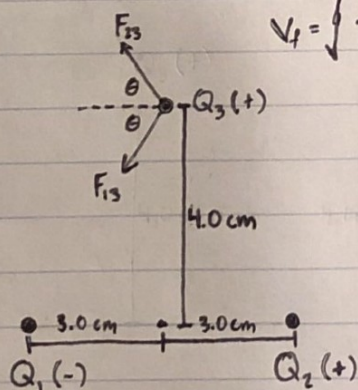 F₂₃
V_f = ∫
θ
Q₃ (+)
θ
F₁₃
4.0 cm
3.0 cm
3.0 cm
Q₁ (-)
Q₂ (+)